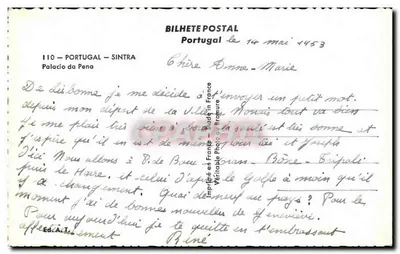 BILHETE POSTAL
Portugal le 14 mai 1953
110 — PORTUGAL — SINTRA
Palacio da Pena
Chère Anne-Marie
De Lisbonne je me décide à t'envoyer un petit mot.
depuis mon départ de la ville. tout va bien
je me plais bien la suite est bonne et
j'espère qu'il en est de même pour toi et
D'ici Nous allons à Oran - Bône - Tripoli
puis le Havre. et celui d'après le Golfe à moins qu'il
y a changement. Quoi de neuf au pays? Pour le
moment j'ai de bonnes nouvelles de Geneviève.
Pour aujourd'hui je te quitte en t'embrassant
affectueusement
René
Ed. A. T.
Imprimé en France Made in France
Véritable Photo au Bromure
CPARAMA